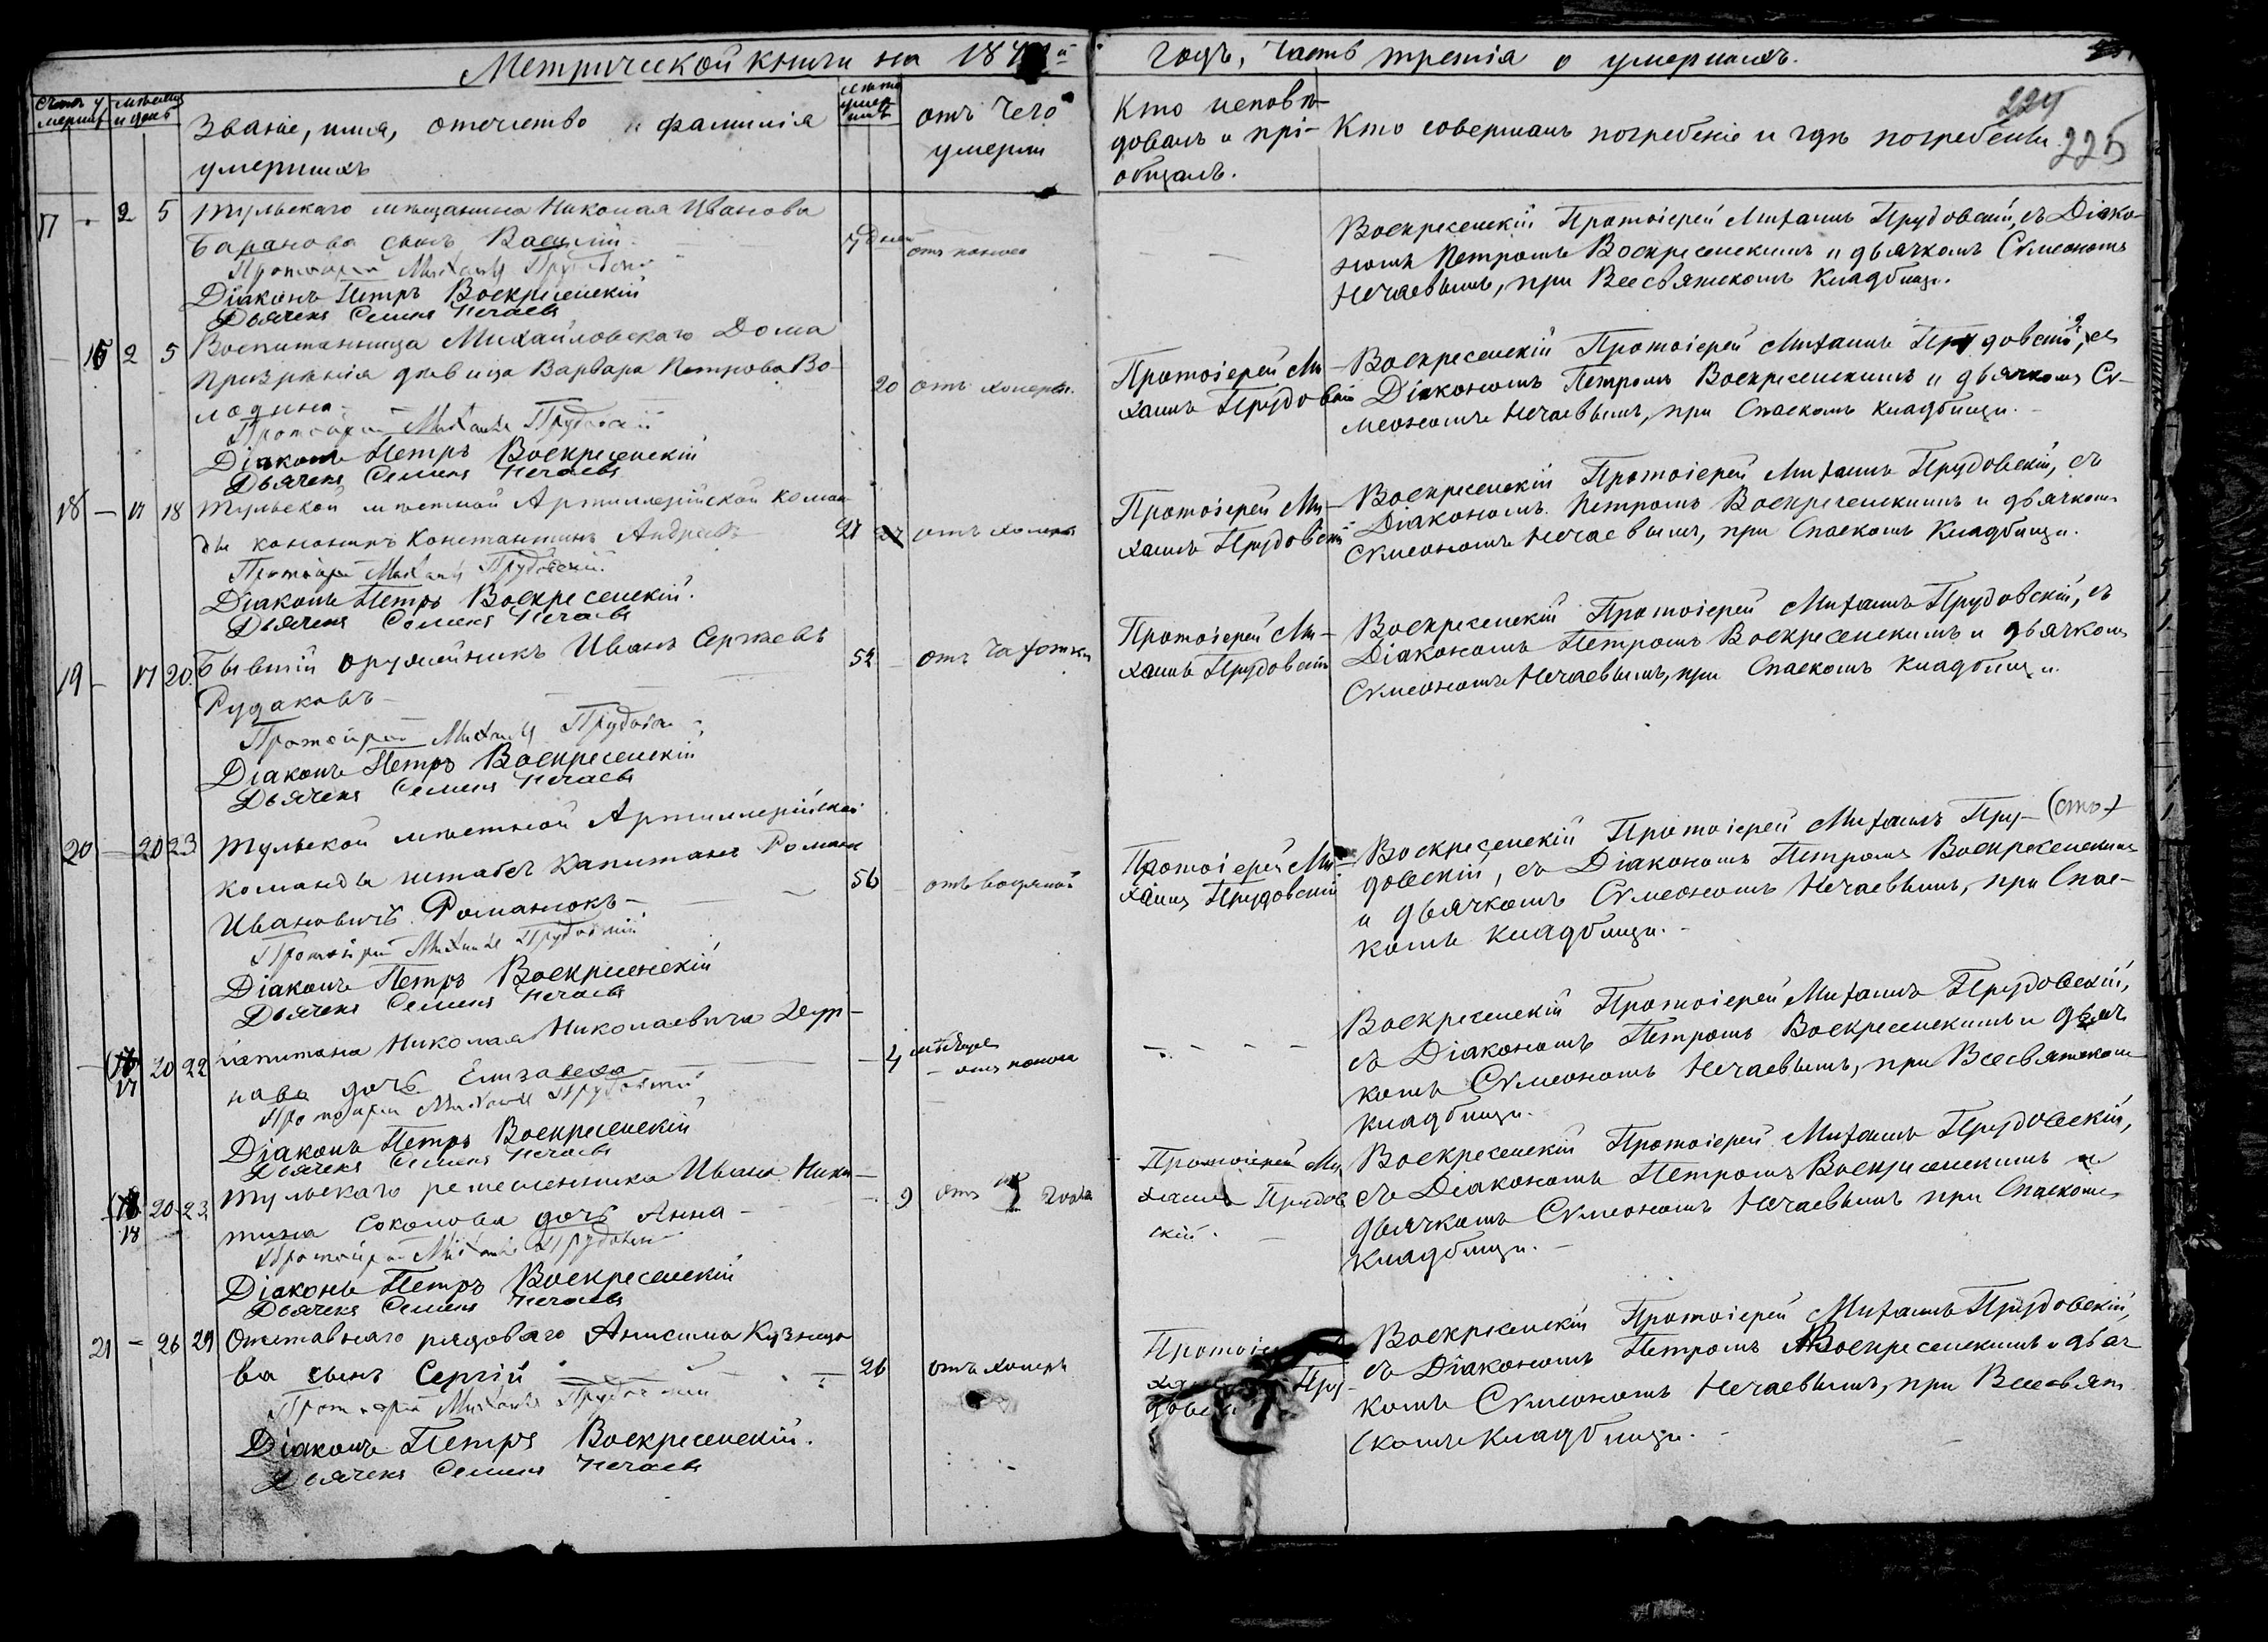 Метрической книги на 187
годъ, часть третія о умершихъ.
224
225
Счетъ умерш
мѣсяцъ и день
Званіе, имя, отчество и фамилія
умершихъ
лѣта умершихъ
отъ чего
умерли
Кто исповѣ-
довалъ и прі-
общалъ.
Кто совершалъ погребеніе и гдѣ погребены.
17 - 2 5 Тульскаго мѣщанина Николая Иванова
Баранова сынъ Василій
7 дней
отъ поноса
Протоіерей Михаилъ Прудовскій
Діаконъ Петръ Воскресенскій
Дьячекъ Семенъ Нечаевъ
Воскресенскій Протоіерей Михаилъ Прудовскій, съ Діако-
номъ Петромъ Воскресенскимъ и дьячкомъ Сѵмеономъ
Нечаевымъ, при Всесвятскомъ кладбищѣ.
- 16 2 5 Воспитанница Михайловскаго Дома
призрѣнія дѣвица Варвара Петрова Во-
лодина
20 отъ холеры.
Протоіерей Михаилъ Прудовскій
Діаконъ Петръ Воскресенскій
Дьячекъ Семенъ Нечаевъ
Протоіерей Ми-
хаилъ Прудовскій
Воскресенскій Протоіерей Михаилъ Прудовскій, съ
Діакономъ Петромъ Воскресенскимъ и дьячкомъ Сѵ-
меономъ Нечаевымъ, при Спасскомъ кладбищѣ.
18 - 17 18 Тульской мѣстной Артиллерійской коман-
ды канониръ Константинъ Андреевъ
27 отъ холеры
Протоіерей Михаилъ Прудовскій
Діаконъ Петръ Воскресенскій.
Дьячекъ Семенъ Нечаевъ
Протоіерей Ми-
хаилъ Прудовскій
Воскресенскій Протоіерей Михаилъ Прудовскій, съ
Діакономъ Петромъ Воскресенскимъ и дьячкомъ
Сѵмеономъ Нечаевымъ, при Спасскомъ Кладбищѣ.
19 - 17 20 Бывшій оружейникъ Иванъ Сергѣевъ
Рудаковъ
52 отъ чахотки
Протоіерей Михаилъ Прудовскій
Діаконъ Петръ Воскресенскій
Дьячекъ Семенъ Нечаевъ
Протоіерей Ми-
хаилъ Прудовскій
Воскресенскій Протоіерей Михаилъ Прудовскій, съ
Діакономъ Петромъ Воскресенскимъ и дьячкомъ
Сѵмеономъ Нечаевымъ, при Спасскомъ кладбищѣ.
20 - 20 23 Тульской мѣстной Артиллерійской
команды штабсъ капитанъ Романъ
Ивановичъ Романюкъ
56 отъ водяной
Протоіерей Михаилъ Прудовскій
Діаконъ Петръ Воскресенскій
Дьячекъ Семенъ Нечаевъ
Протоіерей Ми-
хаилъ Прудовскій
Воскресенскій Протоіерей Михаилъ Пру-
довскій, съ Діакономъ Петромъ Воскресенскимъ
и дьячкомъ Сѵмеономъ Нечаевымъ, при Спас-
комъ кладбищѣ.
17 20 22 капитана Николая Николаевича
дочь Елизавета
4 мѣсяце
отъ поноса
Протоіерей Михаилъ Прудовскій
Діаконъ Петръ Воскресенскій
Дьячекъ Семенъ Нечаевъ
Воскресенскій Протоіерей Михаилъ Прудовскій,
съ Діакономъ Петромъ Воскресенскимъ и дьяч
комъ Сѵмеономъ Нечаевымъ, при Всесвятскомъ
кладбищѣ.
18 20 23 Тульскаго ремесленника Ивана Ники-
тина Соколова дочь Анна
9 отъ
Протоіерей Михаилъ Прудовскій
Діаконъ Петръ Воскресенскій
Дьячекъ Семенъ Нечаевъ
Протоіерей Ми
хаилъ Прудов
скій.
Воскресенскій Протоіерей Михаилъ Прудовскій,
съ Діакономъ Петромъ Воскресенскимъ и
дьячкомъ Сѵмеономъ Нечаевымъ при Спаскомъ
кладбищѣ.
21 - 26 29 Отставнаго рядоваго Анисима Кузнецо
ва сынъ Сергій
26 отъ холеры
Протоіерей Михаилъ Прудовскій
Діаконъ Петръ Воскресенскій.
Дьячекъ Семенъ Нечаевъ
Воскресенскій Протоіерей Михаилъ Прудовскій,
съ Діакономъ Петромъ Воскресенскимъ и дьяч
комъ Сѵмеономъ Нечаевымъ, при Всесвят
скомъ кладбищѣ.